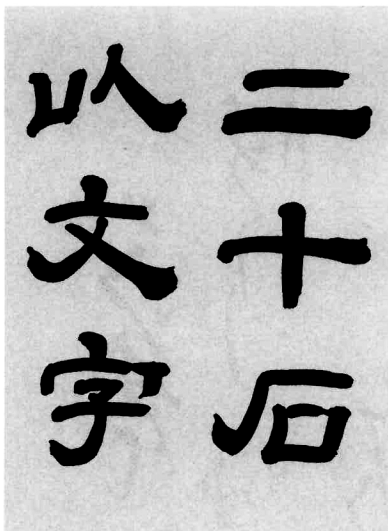 二十石
以文字